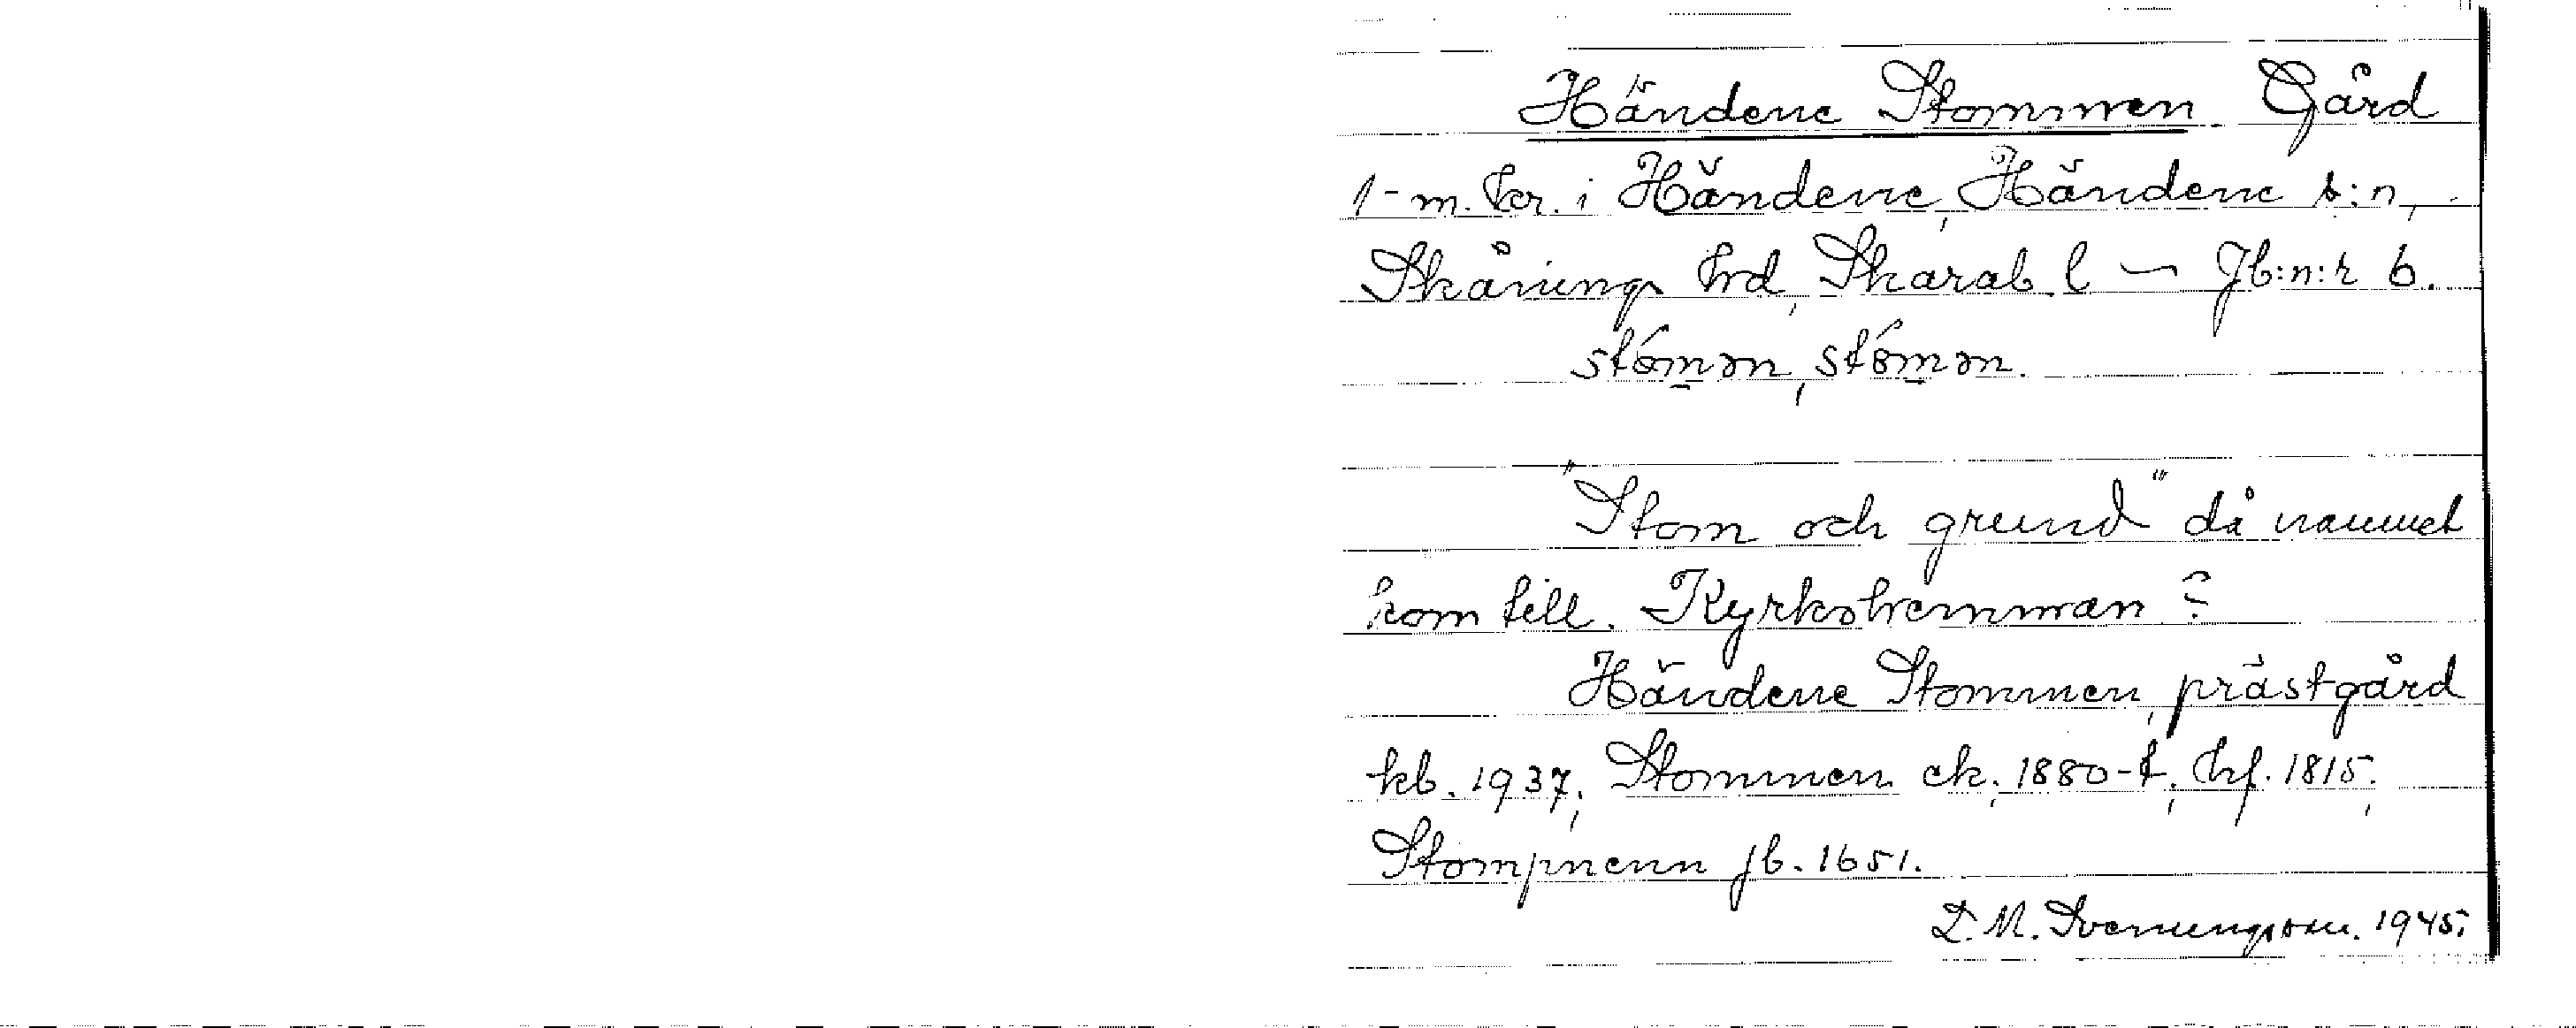 Händene Stommen. Gård
1-m. kr. i Händene, Händene s:n,
Skånings hd, Skarab. l — Jb:n:r 6.
stómən, stómən.
"Stom och grund" då namnet
kom till. Kyrkohemman?
Händene Stommen, prästgård
kb. 1937; Stommen ek. 1880-t; hf. 1815;
Stompnenn jb. 1651.
D. M. Svenungsson. 1945.